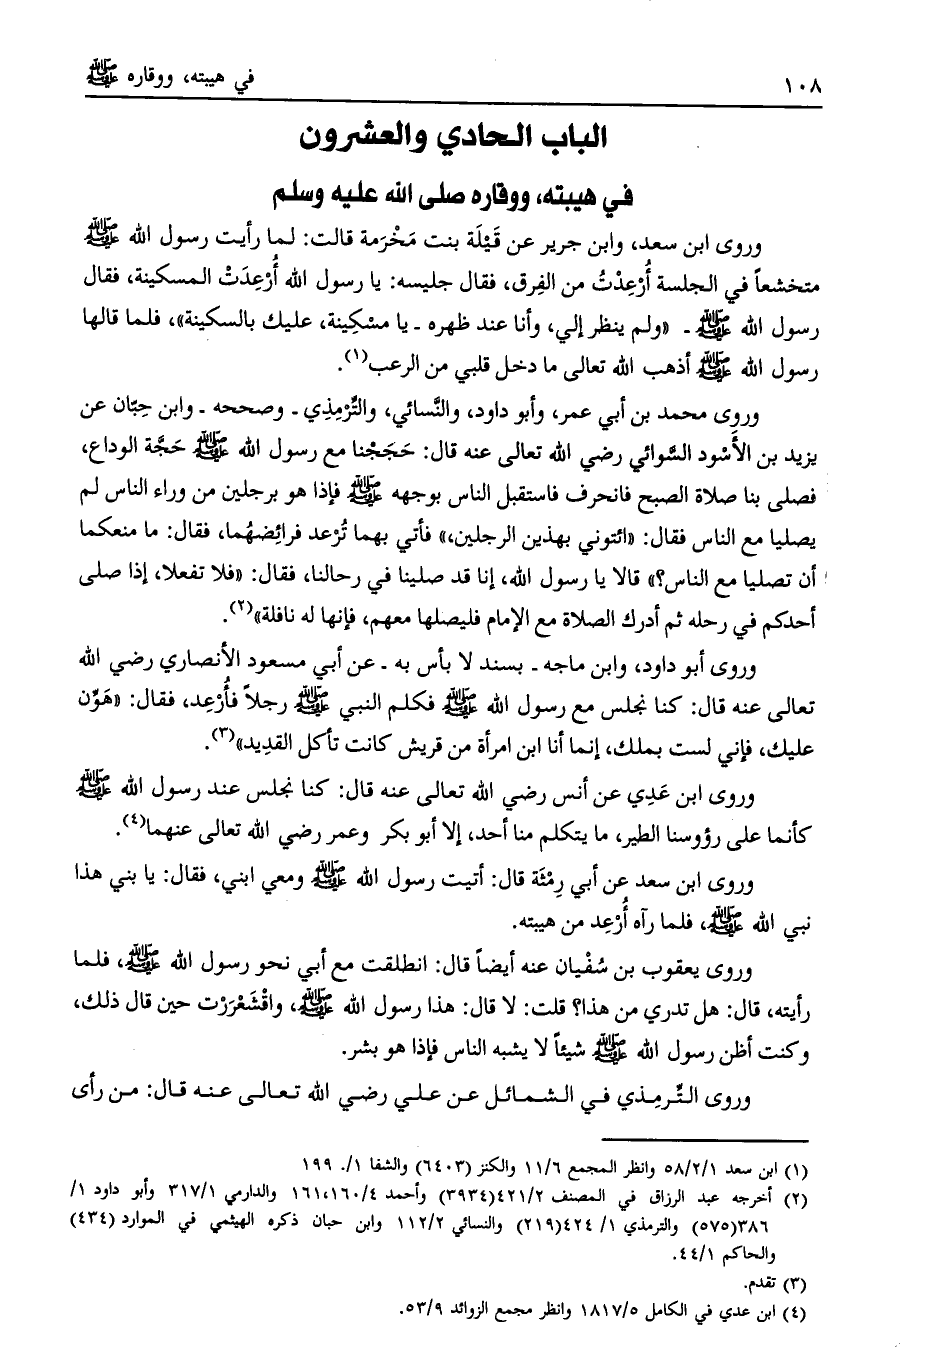 ١٠٨ في هيبته، ووقاره ﷺ
الباب الحادي والعشرون
في هيبته، ووقاره صلى الله عليه وسلم
وروى ابن سعد، وابن جرير عن قَيْلَة بنت مَخْرَمة قالت: لما رأيت رسول الله ﷺ
متخشعاً في الجلسة أُرْعِدْتُ من الفِرق، فقال جليسه: يا رسول الله أُرْعِدَتْ المسكينة، فقال
رسول الله ﷺ ـ «ولم ينظر إلي، وأنا عند ظهره ـ يا مسْكِينة، عليك بالسكينة»، فلما قالها
رسول الله ﷺ أذهب الله تعالى ما دخل قلبي من الرعب(١).
وروى محمد بن أبي عمر، وأبو داود، والنَّسائي، والتِّرْمِذي ـ وصححه ـ وابن حِبّان عن
يزيد بن الأَسْود السُّوائي رضي الله تعالى عنه قال: حَجَجْنا مع رسول الله ﷺ حَجَّة الوداع،
فصلى بنا صلاة الصبح فانحرف فاستقبل الناس بوجهه ﷺ فإذا هو برجلين من وراء الناس لم
يصليا مع الناس فقال: «ائتوني بهذين الرجلين،» فأتي بهما تُرْعد فرائِصُهُما، فقال: ما منعكما
أن تصليا مع الناس؟» قالا يا رسول الله، إنا قد صلينا في رحالنا، فقال: «فلا تفعلا، إذا صلى
أحدكم في رحله ثم أدرك الصلاة مع الإمام فليصلها معهم، فإنها له نافلة»(٢).
وروى أبو داود، وابن ماجه ـ بسند لا بأس به ـ عن أبي مسعود الأنصاري رضي الله
تعالى عنه قال: كنا نجلس مع رسول الله ﷺ فكلم النبي ﷺ رجلاً فأُرْعِد، فقال: «هَوِّن
عليك، فإني لست بملك، إنما أنا ابن امرأة من قريش كانت تأكل القديد»(٣).
وروى ابن عَدِي عن أنس رضي الله تعالى عنه قال: كنا نجلس عند رسول الله ﷺ
كأنما على رؤوسنا الطير، ما يتكلم منا أحد، إلا أبو بكر وعمر رضي الله تعالى عنهما(٤).
وروى ابن سعد عن أبي رِمْثَة قال: أتيت رسول الله ﷺ ومعي ابني، فقال: يا بني هذا
نبي الله ﷺ، فلما رآه أُرْعِد من هيبته.
وروى يعقوب بن سُفْيان عنه أيضاً قال: انطلقت مع أبي نحو رسول الله ﷺ، فلما
رأيته، قال: هل تدري من هذا؟ قلت: لا قال: هذا رسول الله ﷺ، واقْشَعْرَرْت حين قال ذلك،
وكنت أظن رسول الله ﷺ شيئاً لا يشبه الناس فإذا هو بشر.
وروى التِّرمِذي في الشمائل عن علي رضي الله تعالى عنه قال: من رأى
(١) ابن سعد ٥٨/٢/١ وانظر المجمع ١١/٦ والكنز (٦٤٠٣) والشفا ١/. ١٩٩
(٢) أخرجه عبد الرزاق في المصنف ٤٢١/٢(٣٩٣٤) وأحمد ١٦١،١٦٠/٤ والدارمي ٣١٧/١ وأبو داود ١/
٣٨٦(٥٧٥) والترمذي ١/ ٤٢٤(٢١٩) والنسائي ١١٢/٢ وابن حبان ذكره الهيثمي في الموارد (٤٣٤)
والحاكم ٤٤/١.
(٣) تقدم.
(٤) ابن عدي في الكامل ١٨١٧/٥ وانظر مجمع الزوائد ٥٣/٩.